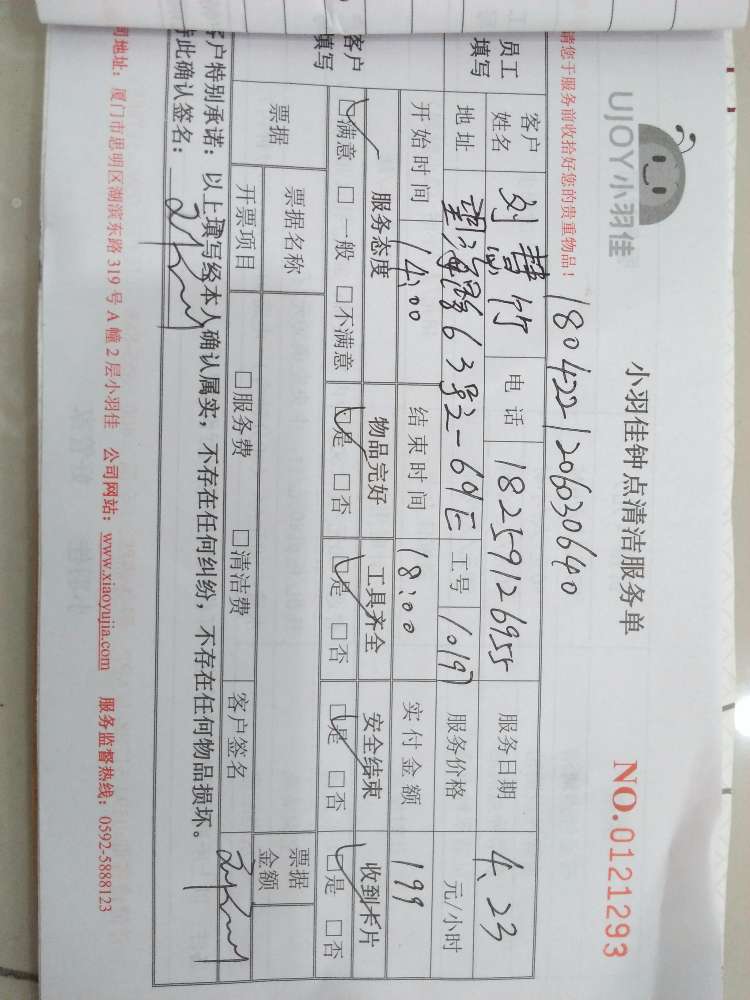 UJOY小羽佳
小羽佳钟点清洁服务单
NO.0121293
请您于服务前收拾好您的贵重物品!
1804221206030640
员工填写
客户姓名 刘慧竹 电话 18259126955 服务日期 4.23
地址 63号2-69E 工号 1019 服务价格 元/小时
开始时间 14:00 结束时间 18:00 实付金额 199
客户填写
服务态度 物品完好 工具齐全 安全结束 收到卡片
☑满意 □一般 □不满意 ☑是 □否 ☑是 □否 ☑是 □否 ☑是 □否
票据 票据名称 票据金额
开票项目 □服务费 □清洁费 客户签名
客户特别承诺:以上填写经本人确认属实,不存在任何纠纷,不存在任何物品损坏。
特此确认签名:
司地址:厦门市思明区湖滨东路319号A幢2层小羽佳 公司网站:www.xiaoyujia.com 服务监督热线:0592-5888123